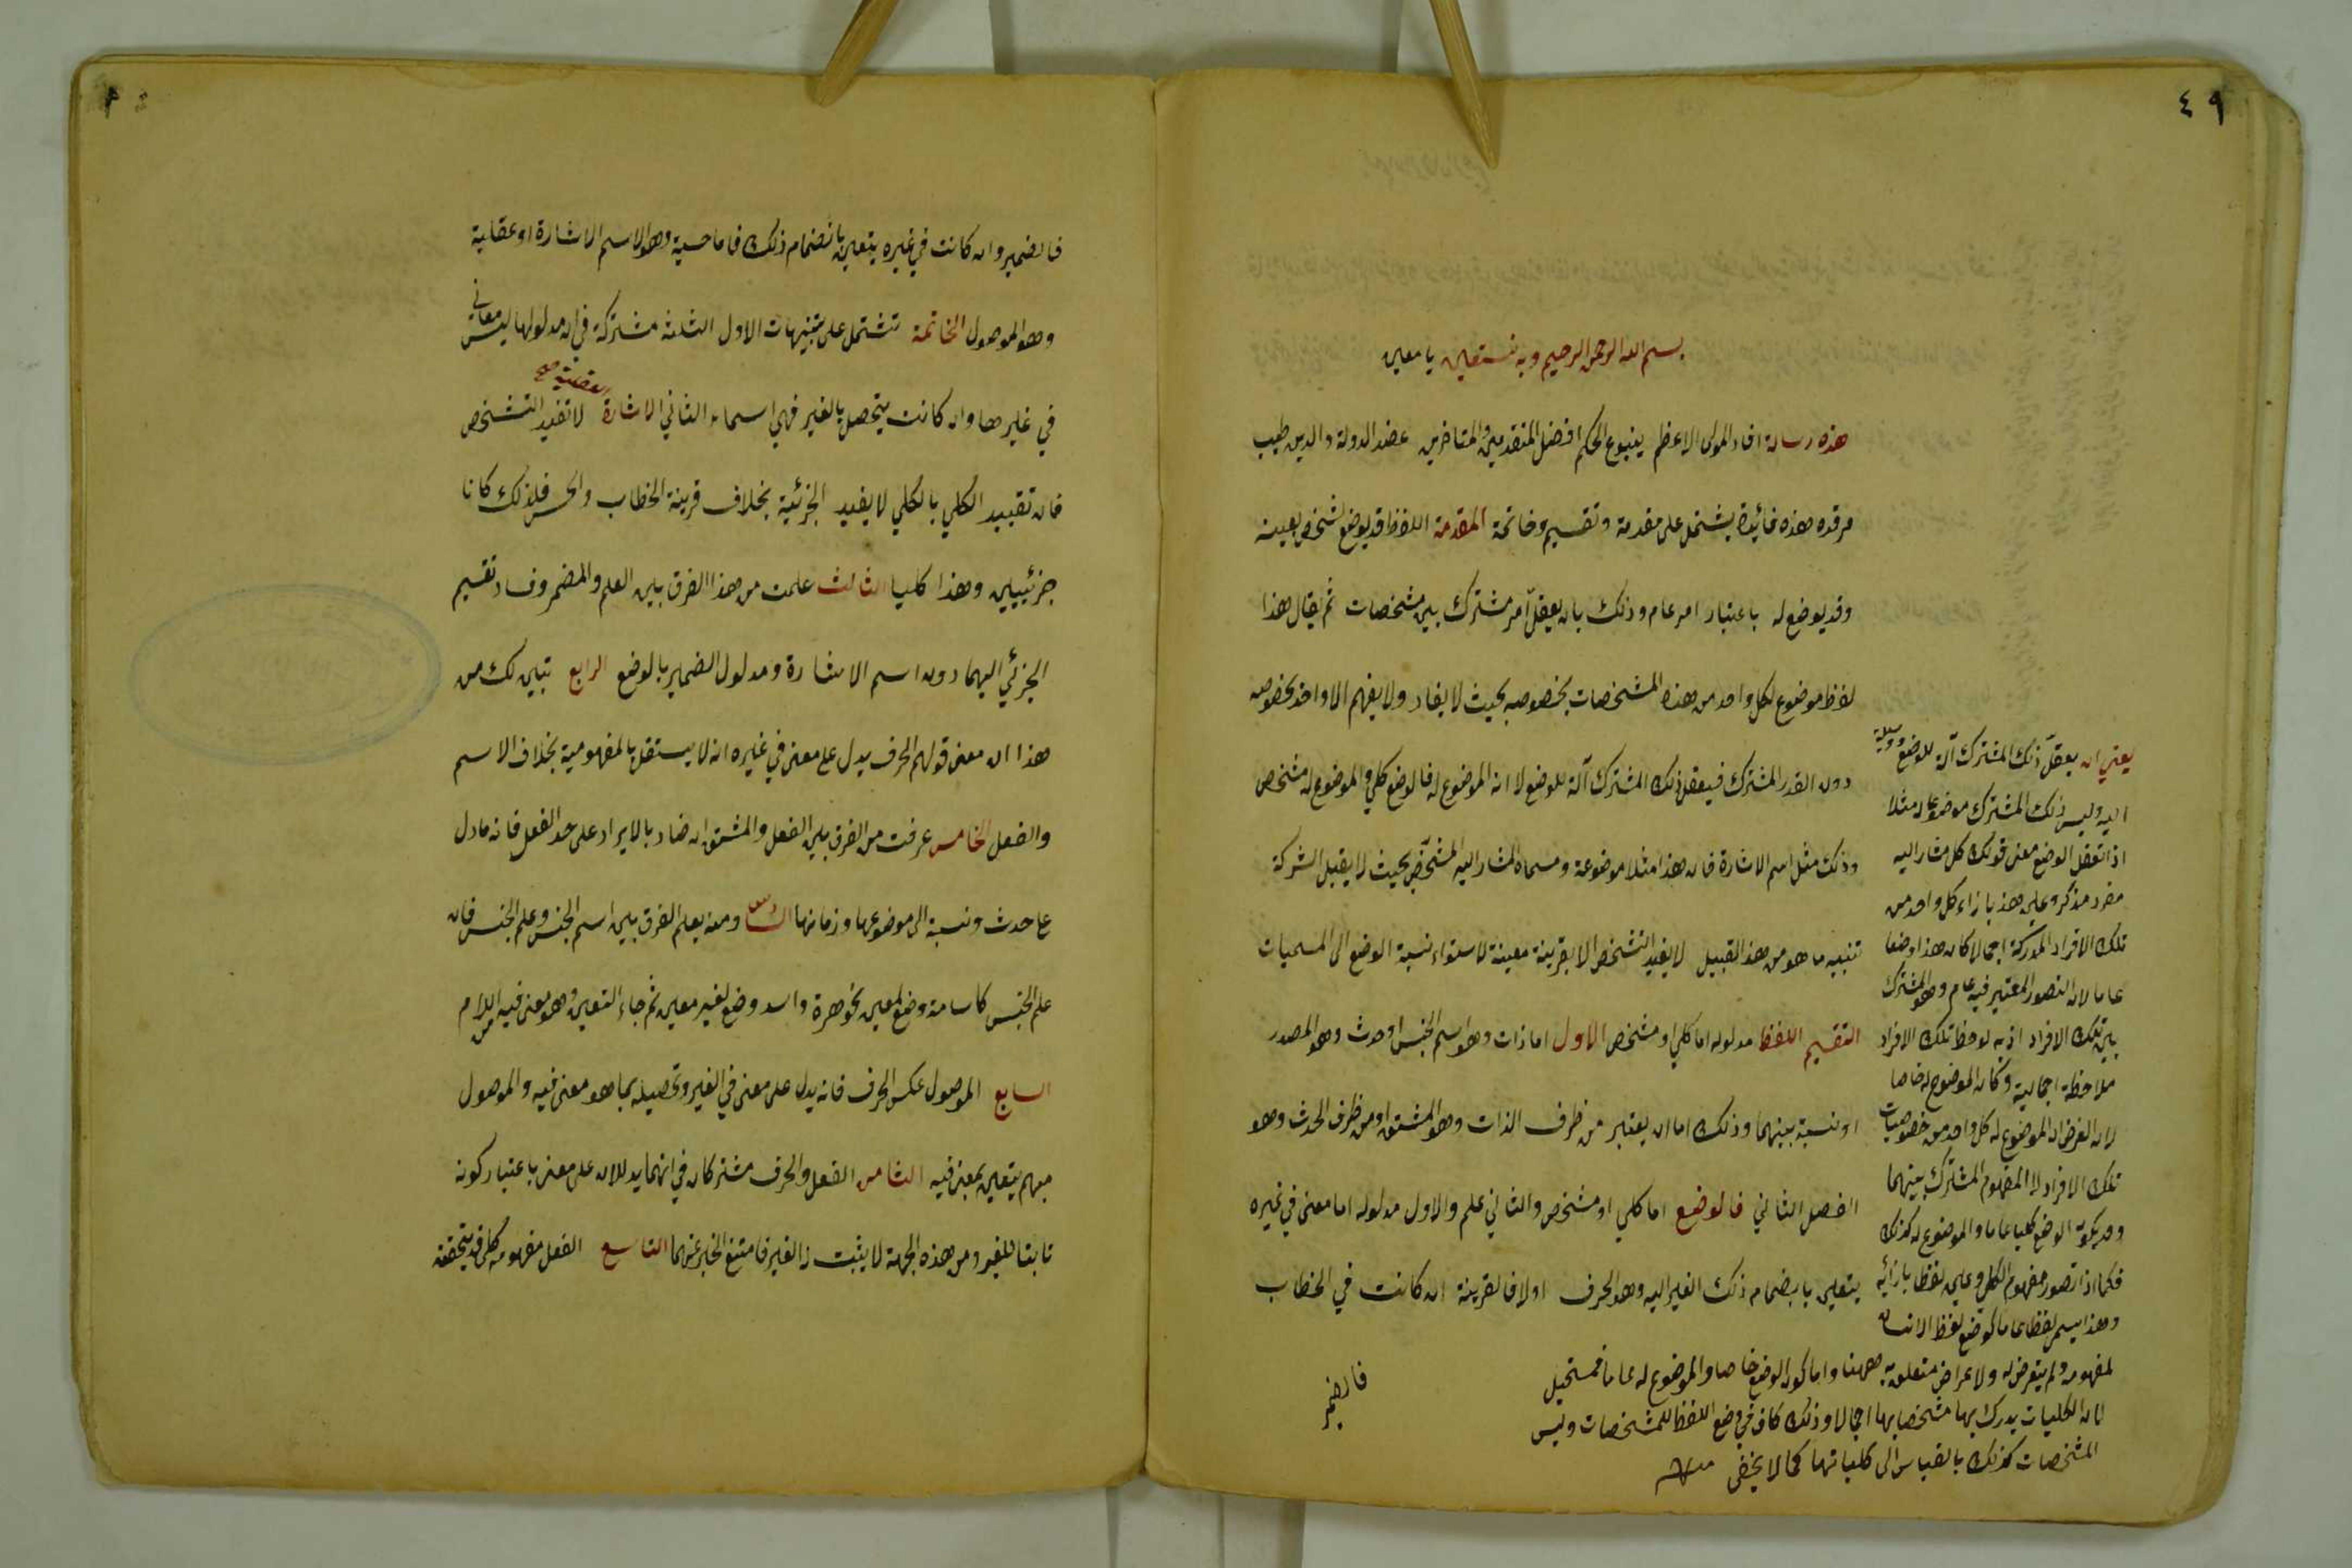 ٤٩
بسم الله الرحمن الرحيم وبه نستعين يا معين
هذه رسالة افاد المولى الاعظم ينبوع الحكم افضل المتقدمين والمتاخرين عضد الدولة والدين طيب
مرقده هذه فائدة يشتمل على مقدمة وتقسيم وخاتمة المقدمة اللفظ قد يوضع لشخص بعينه
وقد يوضع له باعتبار امر عام وذلك بان يعقل امر مشترك بين مشخصات ثم يقال هذا
لفظ موضوع لكل واحد من هذه المشخصات بخصوصه بحيث لا يفاد ولا يفهم الا واحد بخصوصه
دون القدر المشترك فيعقل ذلك المشترك آلة للوضع لا انه الموضوع له فالوضع كلي والموضوع له مشخص
وذلك مثل اسم الاشارة فان هذا مثلا موضوعة ومسماه المشار اليه المشخص بحيث لا يقبل الشركة
تنبيه ما هو من هذا القبيل لا يفيد التشخص الا بقرينة معينة لاستواء نسبة الوضع الى المسميات
التقسيم اللفظ مدلوله اما كلي او مشخص الاول اما ذات وهو اسم الجنس او حدث وهو المصدر
او نسبة بينهما وذلك اما ان يعتبر من طرف الذات وهو المشتق او من طرف الحدث وهو
الفصل الثاني فالوضع اما كلي او مشخص والثاني علم والاول مدلوله اما معنى في غيره
يتعين بانضمام ذلك الغير اليه وهو الحرف اولا فالقرينة ان كانت في الخطاب
فالضمير
يعني ان يعقل ذلك المشترك آلة للوضع ووسيلة
اليه وليس ذلك المشترك موضوعا له مثلا
اذا تعقل الوضع معنى قولك كل مشار اليه
مفرد مذكر وعين هذا بازاء كل واحد من
تلك الافراد المدركة اجمالا كان هذا وضعا
عاما لان التصور المعتبر فيه عام وهو المشترك
بين تلك الافراد اذ به لوحظ تلك الافراد
ملاحظة اجمالية وكان الموضوع له خاصا
لان الغرض ان الموضوع له كل واحد من خصوصيات
تلك الافراد لا المفهوم المشترك بينهما
وقد يكون الوضع كليا عاما والموضوع له كذلك
فكما اذا تصور مفهوم الكلي وعين لفظا بازائه
وهذا يسمى لفظا عاما كوضع لفظ الانسان
لمفهومه ولم يتعرض له ولا غراض متعلق به ههنا واما كون الوضع خاصا والموضوع له عاما فمستحيل
لان الكليات يدرك بها مشخصاتها اجمالا وذلك كاف في وضع اللفظ للمشخصات وليس
المشخصات كذلك بالقياس الى كلياتها كما لا يخفى
فالضمير وان كانت في غيره يتعين بانضمام ذلك فاما حسية وهو الاسم الاشارة او عقلية
وهو الموصول الخاتمة تشتمل على تنبيهات الاول الثلثة مشتركة في ان مدلولها ليس معاني
في غيرها وان كانت يتحصل بالغير فهي اسماء الثاني الاشارة العقلية صح لا تفيد التشخص
فان تقييد الكلي بالكلي لا يفيد الجزئية بخلاف قرينة الخطاب والحس فلذلك كانا
جزئيين وهذا كليا الثالث علمت من هذا الفرق بين العلم والمضمر وفساد تقسيم
الجزئي اليهما دون اسم الاشارة ومدلول الضمير بالوضع الرابع تبين لك من
هذا ان معنى قولهم الحرف يدل على معنى في غيره انه لا يستقل بالمفهومية بخلاف الاسم
والفعل الخامس عرفت من الفرق بين الفعل والمشتق ان ضاد بالايراد على حد الفعل فانه ما دل
على حدث ونسبة الى موضوعها وزمانها السادس ومنه يعلم الفرق بين اسم الجنس وعلم الجنس فان
علم الجنس كاسامة وضع لمعين بجوهره واسد وضع لغير معين ثم جاء التعين وهو معنى فيه من اللام
السابع الموصول عكس الحرف فانه يدل على معنى في الغير وتحصيله بما هو معنى فيه والموصول
مبهم يتعين بمعنى فيه الثامن الفعل والحرف مشتركان في انهما يدلان على معنى باعتبار كونه
ثابتا للغير ومن هذه الجهة لا يثبت له الغير فامتنع الخبر عنهما التاسع الفعل مفهومه كلي قد يتحقق